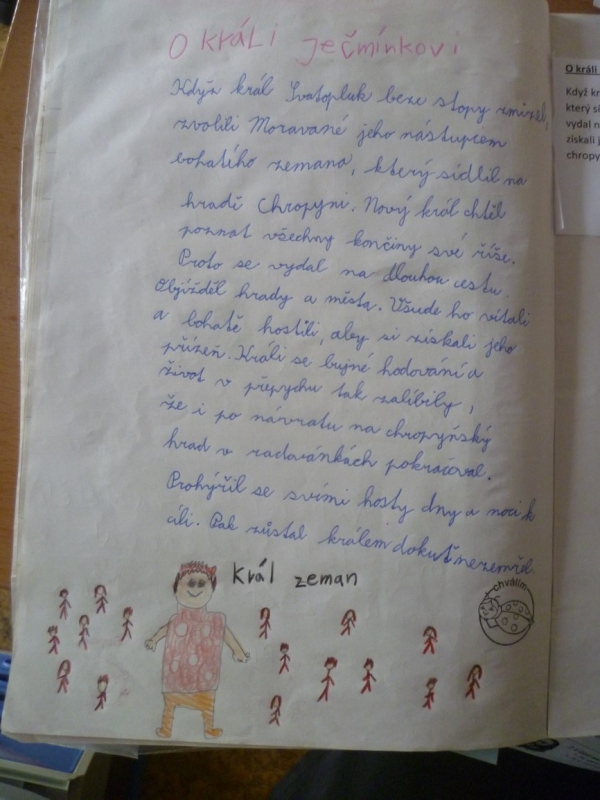 O KRÁLI JEČMÍNKOVI
Když král Svatopluk beze stopy zmizel,
zvolili Moravané jeho nástupcem
bohatího zemana, který sídlil na
hradě Chropyni. Nový král chtěl
poznat všechny končiny své říše.
Proto se vydal na dlouhou cestu.
Objížděl hrady a města. Všude ho vítali
a bohatě hostili, aby si získali jeho
přízeň. Králi se bujné hodování a
život v přepychu tak zalíbily,
že i po návratu na chropyňský
hrad v radovánkách pokračoval.
Prohýřil se svími hosty dny a noci k
cíli. Pak zůstal králem dokuť nezemřel.
Král zeman
chválím
O králi
Když kr
který sí
vydal n
získali j
chropy